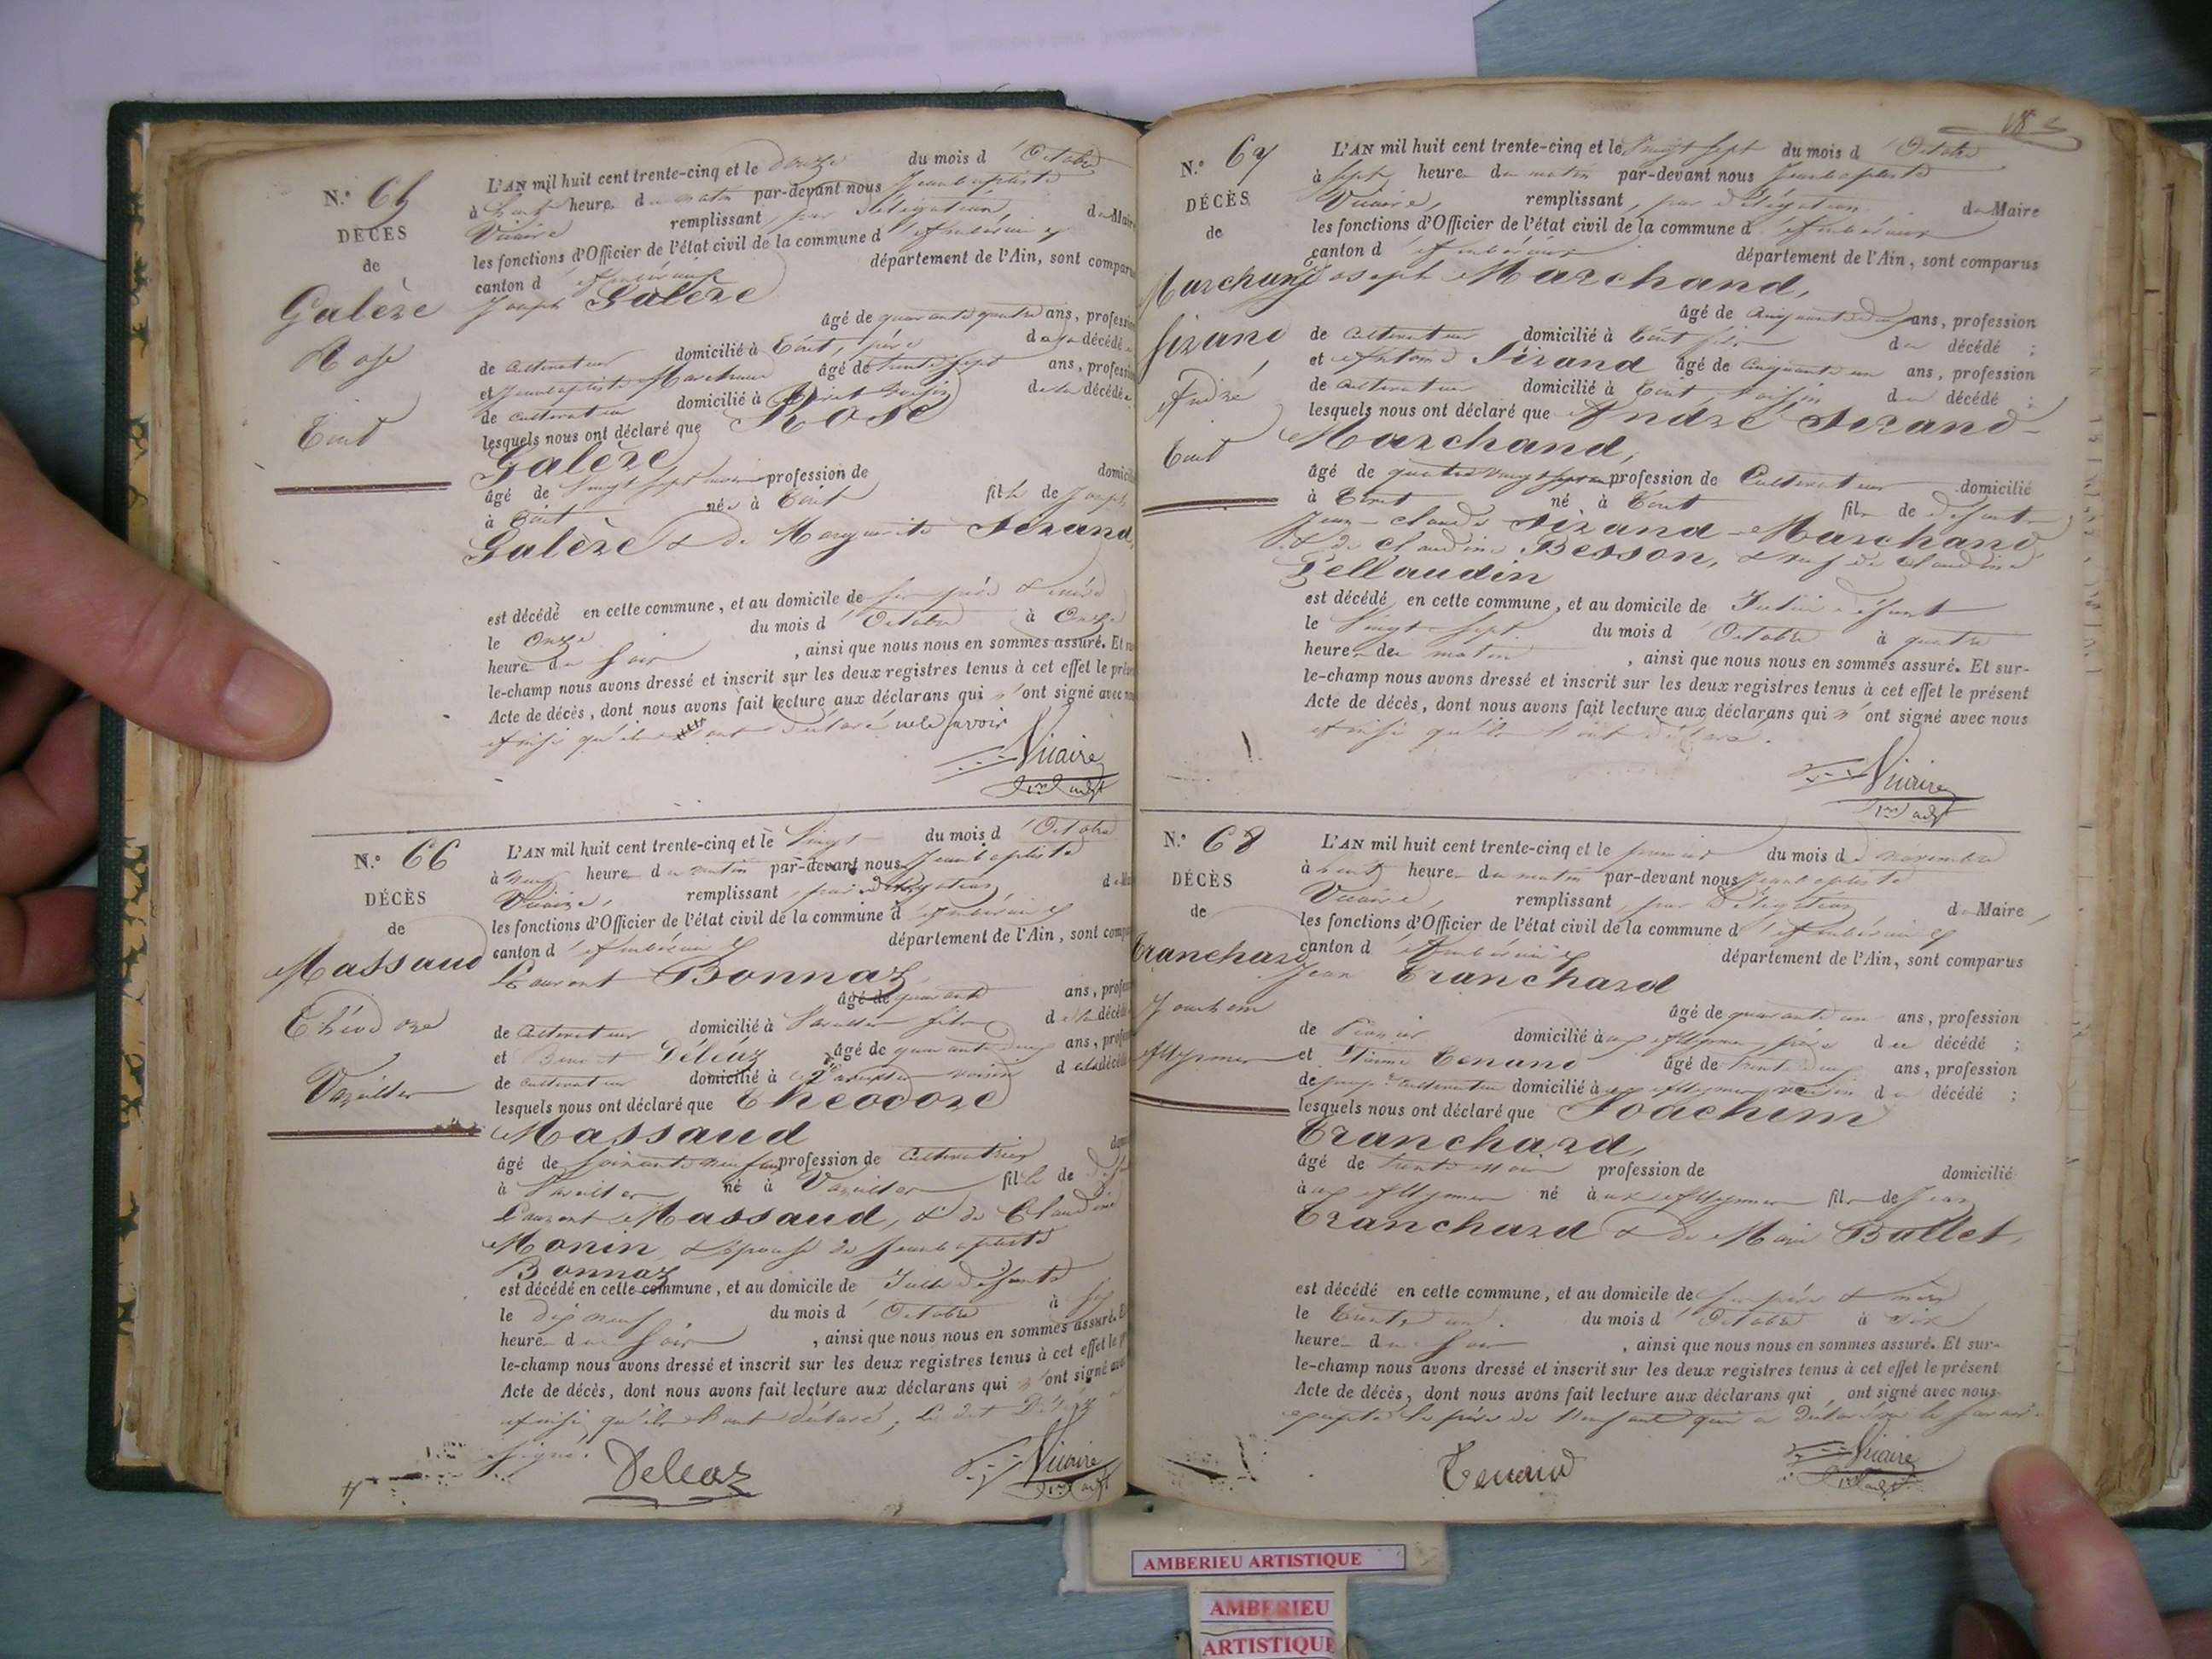 N.° 65
DÉCÈS
de
Galèze
Rose
Tiret
L'AN mil huit cent trente-cinq et le douze du mois d'Octobre
à huit heure du matin par-devant nous Jeanbaptiste
Vicaire remplissant, par délégation, du Maire
les fonctions d'Officier de l'état civil de la commune d'Ambérieux
canton d'Ambérieux département de l'Ain, sont comparus
Joseph Galèze
âgé de quarante quatre ans, profession
de Cultivateur domicilié à Tiret, père de la décédée
et Jeanbaptiste Marchand âgé de trente sept ans, profession
de Cultivateur domicilié à Tiret voisin de la décédée
lesquels nous ont déclaré que Rose
Galèze
âgé de vingt sept mois profession de domicilié
à Tiret née à Tiret fille de Joseph
Galèze & de Marguerite Sirand,
est décédé en cette commune, et au domicile de ses père & mère
le Onze du mois d'Octobre à Onze
heure du soir, ainsi que nous nous en sommes assuré. Et sur
le-champ nous avons dressé et inscrit sur les deux registres tenus à cet effet le présent
Acte de décès, dont nous avons fait lecture aux déclarans qui n'ont signé avec nous
Ainsi qu'ils ont déclaré ne le savoir
Vicaire
N.° 66
DÉCÈS
de
Massaud
Théodore
Vareilles
L'AN mil huit cent trente-cinq et le Vingt du mois d'Octobre
à neuf heure du matin par-devant nous Jeanbaptiste
Vicaire, remplissant, par délégation, du Maire
les fonctions d'Officier de l'état civil de la commune d'Ambérieux
canton d'Ambérieux département de l'Ain, sont comparus
Laurent Bonnaz
âgé de quarante ans, profession
de Cultivateur domicilié à Vareilles fils de la décédée
et Benoit Déléaz âgé de quarante deux ans, profession
de Cultivateur domicilié à Vareilles voisin de la décédée
lesquels nous ont déclaré que Théodore
Massaud
âgé de soixante neuf ans profession de Cultivatrice
à Vareilles né à Vareilles fille de
Laurent Massaud, & de Claudine
Monin & épouse de Jeanbaptiste
Bonnaz
est décédé en cette commune, et au domicile de Ladite défunte
le dix neuf du mois d'Octobre à
heure du soir, ainsi que nous nous en sommes assuré. Et
le-champ nous avons dressé et inscrit sur les deux registres tenus à cet effet le
Acte de décès, dont nous avons fait lecture aux déclarans qui n'ont signé avec
Ainsi qu'ils l'ont déclaré, le dit Déléaz a
signé.
Deleaz
Vicaire
N.° 67
DÉCÈS
de
Marchand
Sirand
André
Tiret
L'AN mil huit cent trente-cinq et le Vingt sept du mois d'Octobre
à sept heure du matin par-devant nous Jeanbaptiste
Vicaire, remplissant, par délégation du Maire
les fonctions d'Officier de l'état civil de la commune d'Ambérieux
canton d'Ambérieux département de l'Ain, sont comparus
Joseph Marchand,
âgé de Cinquante deux ans, profession
de Cultivateur domicilié à Tiret fils du décédé ;
et Antoine Sirand âgé de Cinquante un ans, profession
de Cultivateur domicilié à Tiret voisin du décédé ;
lesquels nous ont déclaré que André Sirand-
Marchand,
âgé de quatre vingt profession de Cultivateur domicilié
à Tiret né à Tiret fils de défunt
Jean-claude Sirand-Marchand
& de claudine Besson, & veuf de claudine
Pellaudin
est décédé en cette commune, et au domicile de Ledit défunt
le Vingt Sept du mois d'Octobre à quatre
heure du matin, ainsi que nous nous en sommes assuré. Et sur-
le-champ nous avons dressé et inscrit sur les deux registres tenus à cet effet le présent
Acte de décès, dont nous avons fait lecture aux déclarans qui n'ont signé avec nous
Ainsi qu'ils l'ont déclaré.
Vicaire
N.° 68
DÉCÈS
de
Tranchard
Joachim
Allymes
L'AN mil huit cent trente-cinq et le premier du mois de novembre
à huit heure du matin par-devant nous Jeanbaptiste
Vicaire, remplissant, par délégation du Maire
les fonctions d'Officier de l'état civil de la commune d'Ambérieux
canton d'Ambérieux département de l'Ain, sont comparus
Jean Tranchard
âgé de quarante un ans, profession
de domicilié aux Allymes père du décédé ;
et Etienne Tenand âgé de trente deux ans, profession
de Cultivateur domicilié aux Allymes voisin du décédé ;
lesquels nous ont déclaré que Joachim
Tranchard,
âgé de trente mois profession de domicilié
aux Allymes né aux Allymes fils de Jean
Tranchard & de Marie Ballet,
est décédé en cette commune, et au domicile de ses père & mère
le Trente un du mois d'Octobre à dix
heure du soir, ainsi que nous nous en sommes assuré. Et sur-
le-champ nous avons dressé et inscrit sur les deux registres tenus à cet effet le présent
Acte de décès, dont nous avons fait lecture aux déclarans qui ont signé avec nous
excepté le père de l'enfant qui a déclaré ne le savoir.
Tenand
Vicaire
AMBERIEU ARTISTIQUE
AMBERIEU
ARTISTIQUE